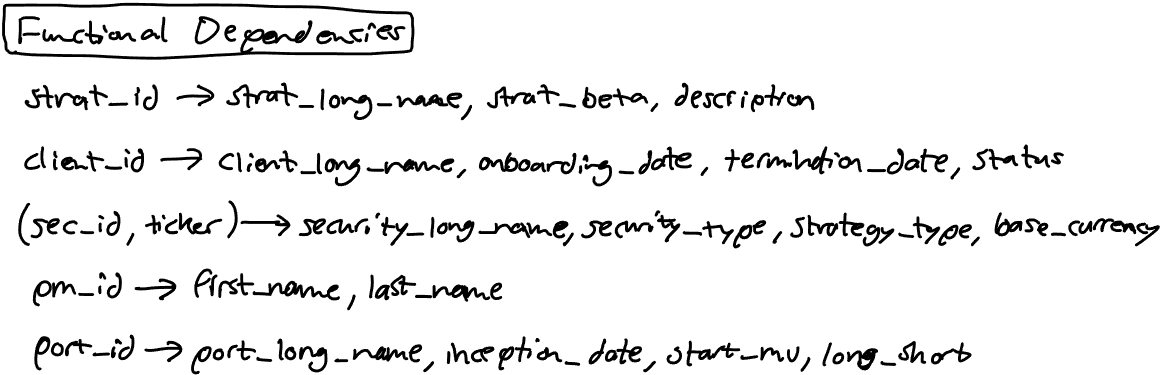 Functional Dependencies
strat_id → strat_long_name, strat_beta, description
client_id → client_long_name, onboarding_date, termination_date, status
(sec_id, ticker) → security_long_name, security_type, strategy_type, base_currency
pm_id → first_name, last_name
port_id → port_long_name, inception_date, start_mv, long_short